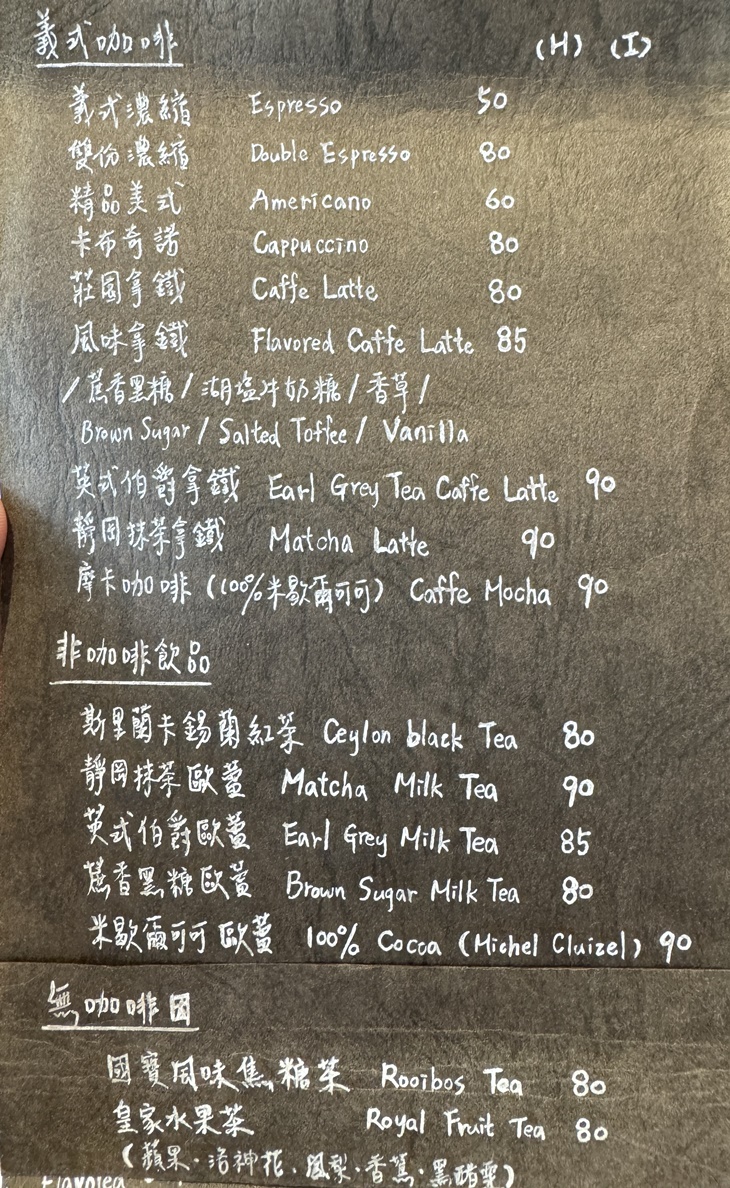 義式咖啡 (H) (I)
義式濃縮 Espresso 50
雙份濃縮 Double Espresso 80
精品美式 Americano 60
卡布奇諾 Cappuccino 80
莊園拿鐵 Caffe Latte 80
風味拿鐵 Flavored Caffe Latte 85
/蔗香黑糖/湖塩牛奶糖/香草/
Brown Sugar/Salted Toffee/Vanilla
英式伯爵拿鐵 Earl Grey Tea Caffe Latte 90
靜岡抹茶拿鐵 Matcha Latte 90
摩卡咖啡(100%米歇爾可可) Caffe Mocha 90
非咖啡飲品
斯里蘭卡錫蘭紅茶 Ceylon black Tea 80
靜岡抹茶歐蕾 Matcha Milk Tea 90
英式伯爵歐蕾 Earl Grey Milk Tea 85
蔗香黑糖歐蕾 Brown Sugar Milk Tea 80
米歇爾可可歐蕾 100% Cocoa (Michel Cluizel) 90
無咖啡因
國寶風味焦糖茶 Rooibos Tea 80
皇家水果茶 Royal Fruit Tea 80
(蘋果·洛神花·鳳梨·香蕉·黑醋栗)